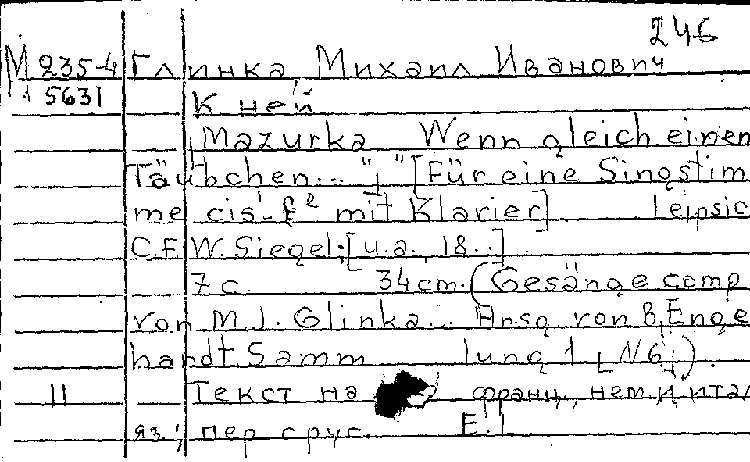 246
М 235-4 Глинка, Михаил Иванович
5631 К ней
Mazurka Wenn gleich einen
Täubchen... "j" [Für eine Singstim
me cis'-f² mit Klavier] Leipsic
C.F.W. Siegel; [u.a., 18..]
7 с. 34 cm. (Gesänge comp
von M.J. Glinka... Hrsg von B. Enge
hardt Samm lung 1 [N6;)
II Текст на франц., нем. и итал
яз.; пер с рус. E.I